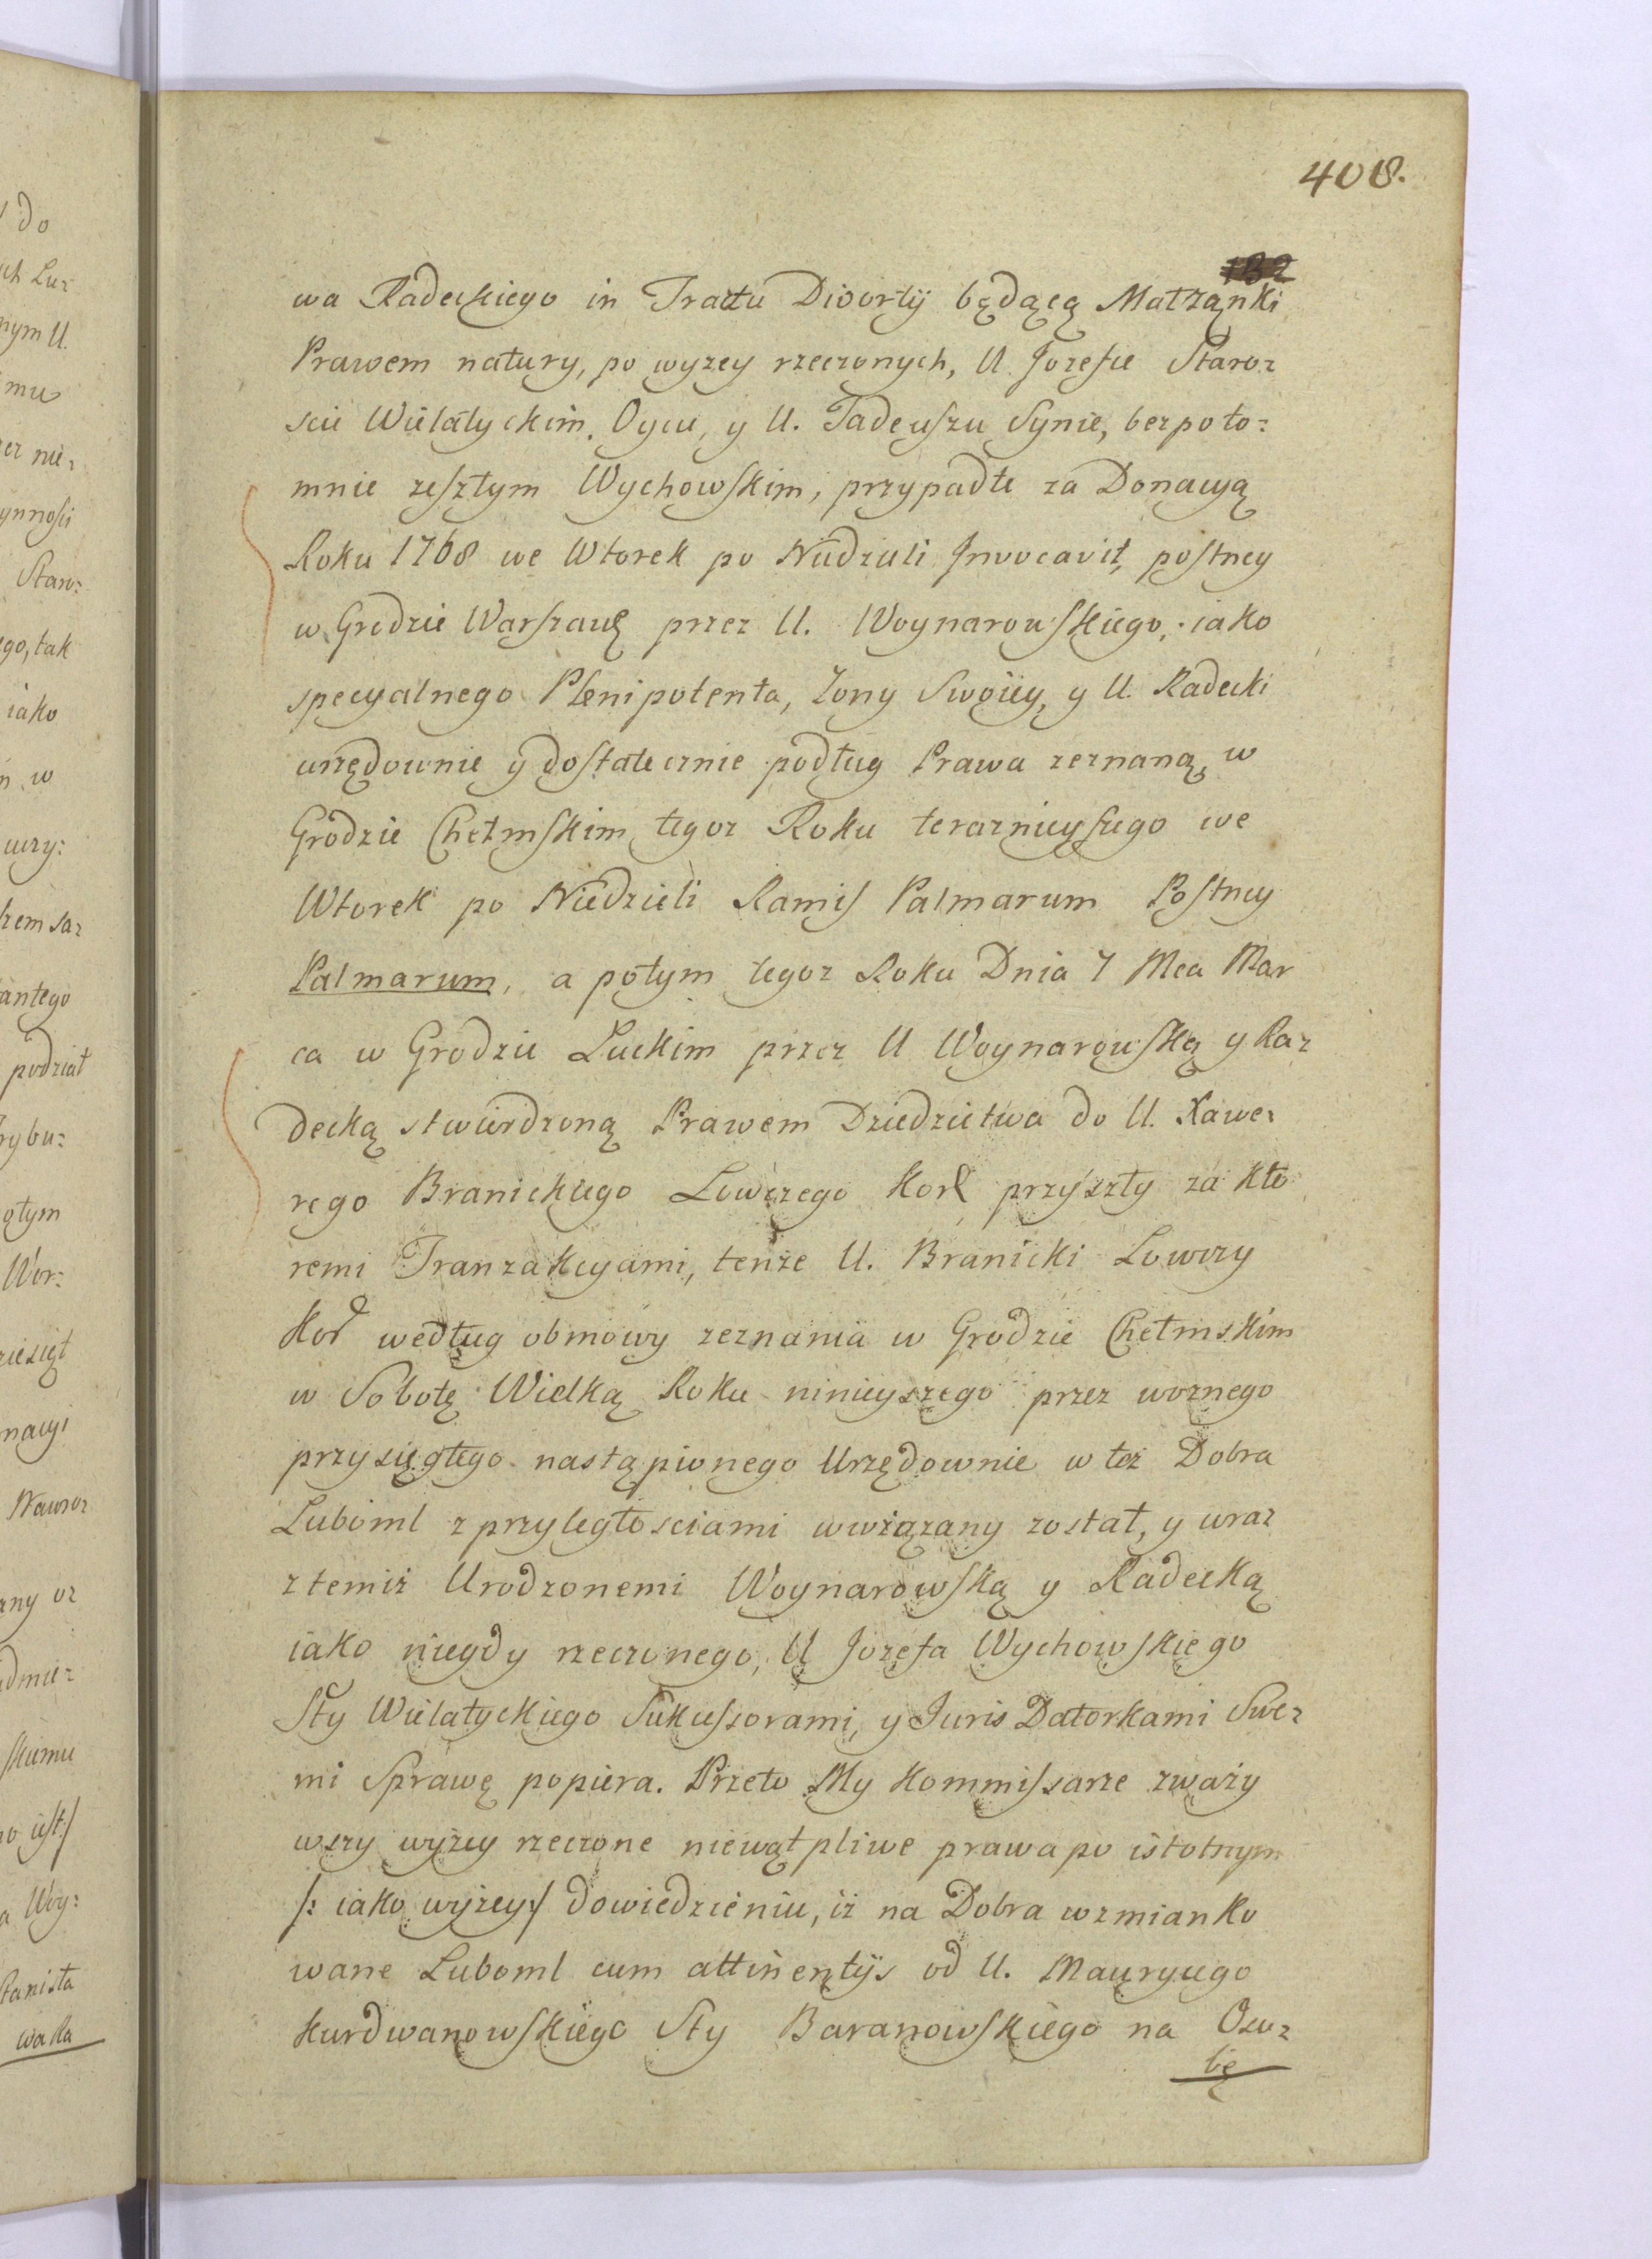 408.
132
wa Radeckiego in Tractu Divortÿ będącą Małżąnki
Prawem natury, po wyzey rzeczonych, U. Jozefie Staro:
scie Wielatyckim, Oycu, y U. Tadeuszu Synie, bezpoto:
mnie zeszłym Wychowskim, przypadłe za Donacyą
Roku 1768 we Wtorek po Niedzieli Invocavit, postney
w Grodzie Warszaws przez U. Woynarowskiego, iako
specyalnego Plenipotenta, Zony Swoiey, y U. Radecki
urzędownie y dostatecznie podług Prawa zeznaną, w
Grodzie Chełmskim tegoz Roku teraznieyszego we
Wtorek po Niedzieli Ramis Palmarum Postney
Palmarum, a potym tegoz Roku Dnia 7 Mca Mar
ca w Grodzie Luckim przez U Woynarowską y Ra:
decką stwierdzoną Prawem Dziedzictwa do U. Xawe:
rego Branickiego Lowczego Kor przyszły za kto
remi Tranzakcyami, tenże U. Branicki Lowczy
Kor według obmowy zeznania w Grodzie Chełmskim
w Sobotę Wielką Roku ninieyszego przez woznego
przysięgłego nastąpionego Urzędownie w też Dobra
Luboml z przyległosciami wwiązany został, y wraz
z temiż Urodzonemi Woynarowską y Radecką
iako niegdy rzeczonego, U Jozefa Wychowskiego
Sty Wielatyckiego Sukcessorami, y Juris Datorkami Swe:
mi Sprawę popiera. Przeto My Kommissarze zważy
wszy wyżey rzeczone niewątpliwe prawa po istotnym
/: iako wyżey :/ dowiedzieniu, iż na Dobra wzmianko
wane Luboml cum attinentÿs od U. Maurycego
Kurdwanowskiego Sty Baranowskiego na Osu:
bę